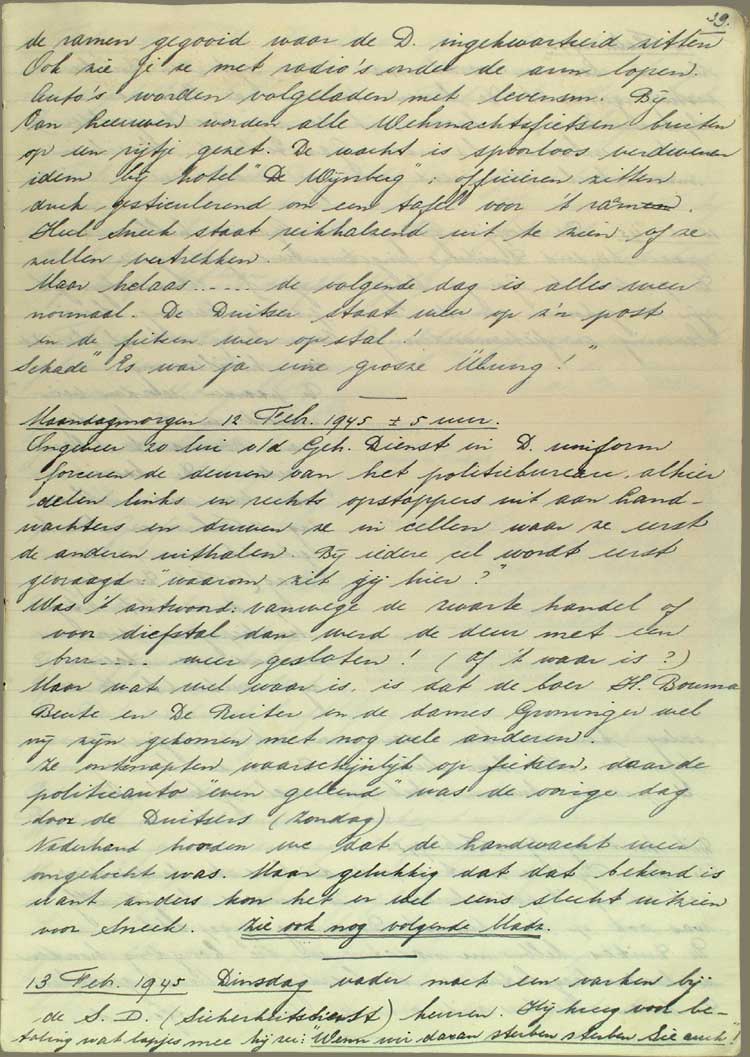 39.
de ramen gegooid waar de D. ingekwartierd zitten
Ook zie je ze met radio's onder de arm lopen.
Auto's worden volgeladen met levensm. Bij
Van Leeuwen worden alle Wehrmachtsfietsen buiten
op een rijtje gezet. De wacht is spoorloos verdwenen
idem bij hotel "De Wijnberg"; officieren zitten
druk gesticulerend om een tafel voor 't raam.
Heel Sneek staat reikhalzend uit te zien of ze
zullen vertrekken!
Maar helaas..... de volgende dag is alles weer
normaal. De Duitser staat weer op z'n post
en de fietsen weer op stal!
Schade "Es war ja eine grosze Übung!"
Maandagmorgen 12 Febr. 1945 ± 5 uur.
Ongeveer 20 lui v/d Geh. Dienst in D. uniform
forceren de deuren van het politiebureau, alhier
delen links en rechts opstoppers uit aan Land-
wachters en duwen ze in cellen waar ze eerst
de anderen uithalen. Bij iedere cel wordt eerst
gevraagd: "waarom zit jij hier?"
Was 't antwoord: vanwege de zwarte handel of
voor diefstal dan werd de deur met een
brr.... weer gesloten! (Of 't waar is?)
Maar wat wel waar is, is dat de boer H. Bouma
Beute en De Ruiter en de dames Groninger wel
vrij zijn gekomen met nog vele anderen.
Ze ontsnapten waarschijnlijk op fietsen, daar de
politieauto "even geleend" was de vorige dag
door de Duitsers (Zondag)
Naderhand hoorden we dat de Landwacht weer
omgekocht was. Maar gelukkig dat dat bekend is
want anders kon het er wel eens slecht uitzien
voor Sneek. Zie ook nog volgende bladz.
13 Feb. 1945 Dinsdag vader moet een varken bij
de S.D. (Sicherheitsdienst) keuren. Hij kreeg voor be-
taling wat lapjes mee hij zei: "Wenn wir daran sterben sterben Sie auch"!